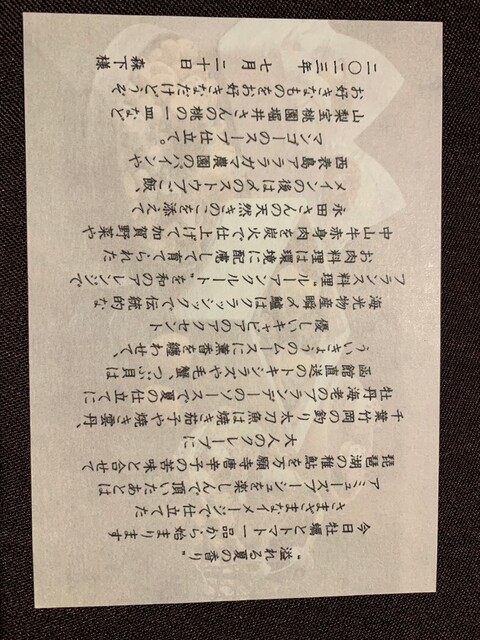 "溢れる夏の香り"
今日牡蠣とトマト一品から始まります
さまざまなイメージで仕立てた
アミューズブーシュを楽しんで頂いたあとは
琵琶湖の稚鮎を万願寺唐辛子の苦味と合せて
大人のクレープに
千葉竹岡の釣り太刀魚は焼き茄子や焼き雲丹、
牡丹海老のブランデーのソースで夏の仕立てに
函館直送のトキシラズや毛蟹、つぶ貝は
ういきょうのムースに薫香を纏わせて、
優しいキャビアのアクセント
海光物産瞬〆鱸はクラシックで伝統的な
フランス料理"ルーアンクルート"を和のアレンジで
お肉料理は環境に配慮して育てられた
中山牛赤身肉を炭火で仕上げて加賀野菜や
永田さんの天然きのこを添えて
メインの後は〆のストウブご飯、
西表島アララガマ農園のパインや
マンゴーのスープ仕立て。
山梨宝桃園堀井さんの桃の一皿など
お好きなものをお好きなだけどうぞ
二〇二三年 七月 二十日 森下様